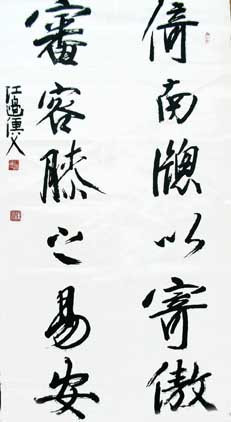 倚南牕以寄傲
審容膝之易安
江邊